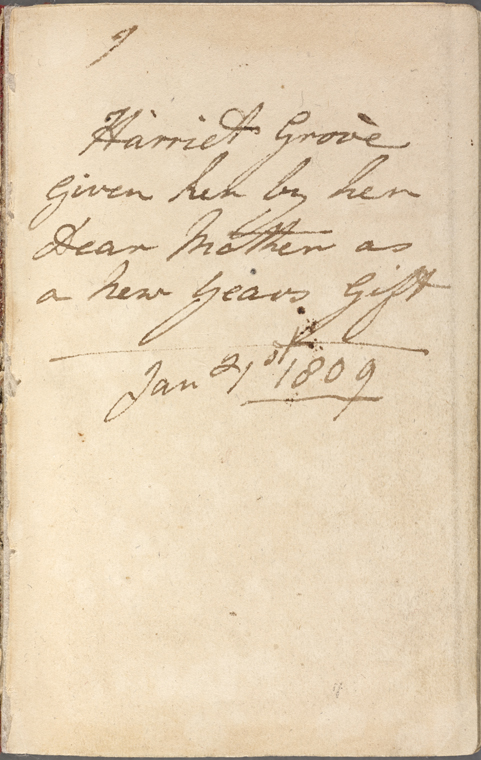 Harriet Grove
Given her by her
Dear Mother as
a new years Gift
Jan 21st 1809